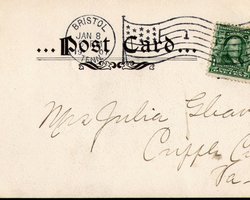 BRISTOL
JAN 8
TENN.
1
...Post Card...
Mrs Julia
Cripple C
Va